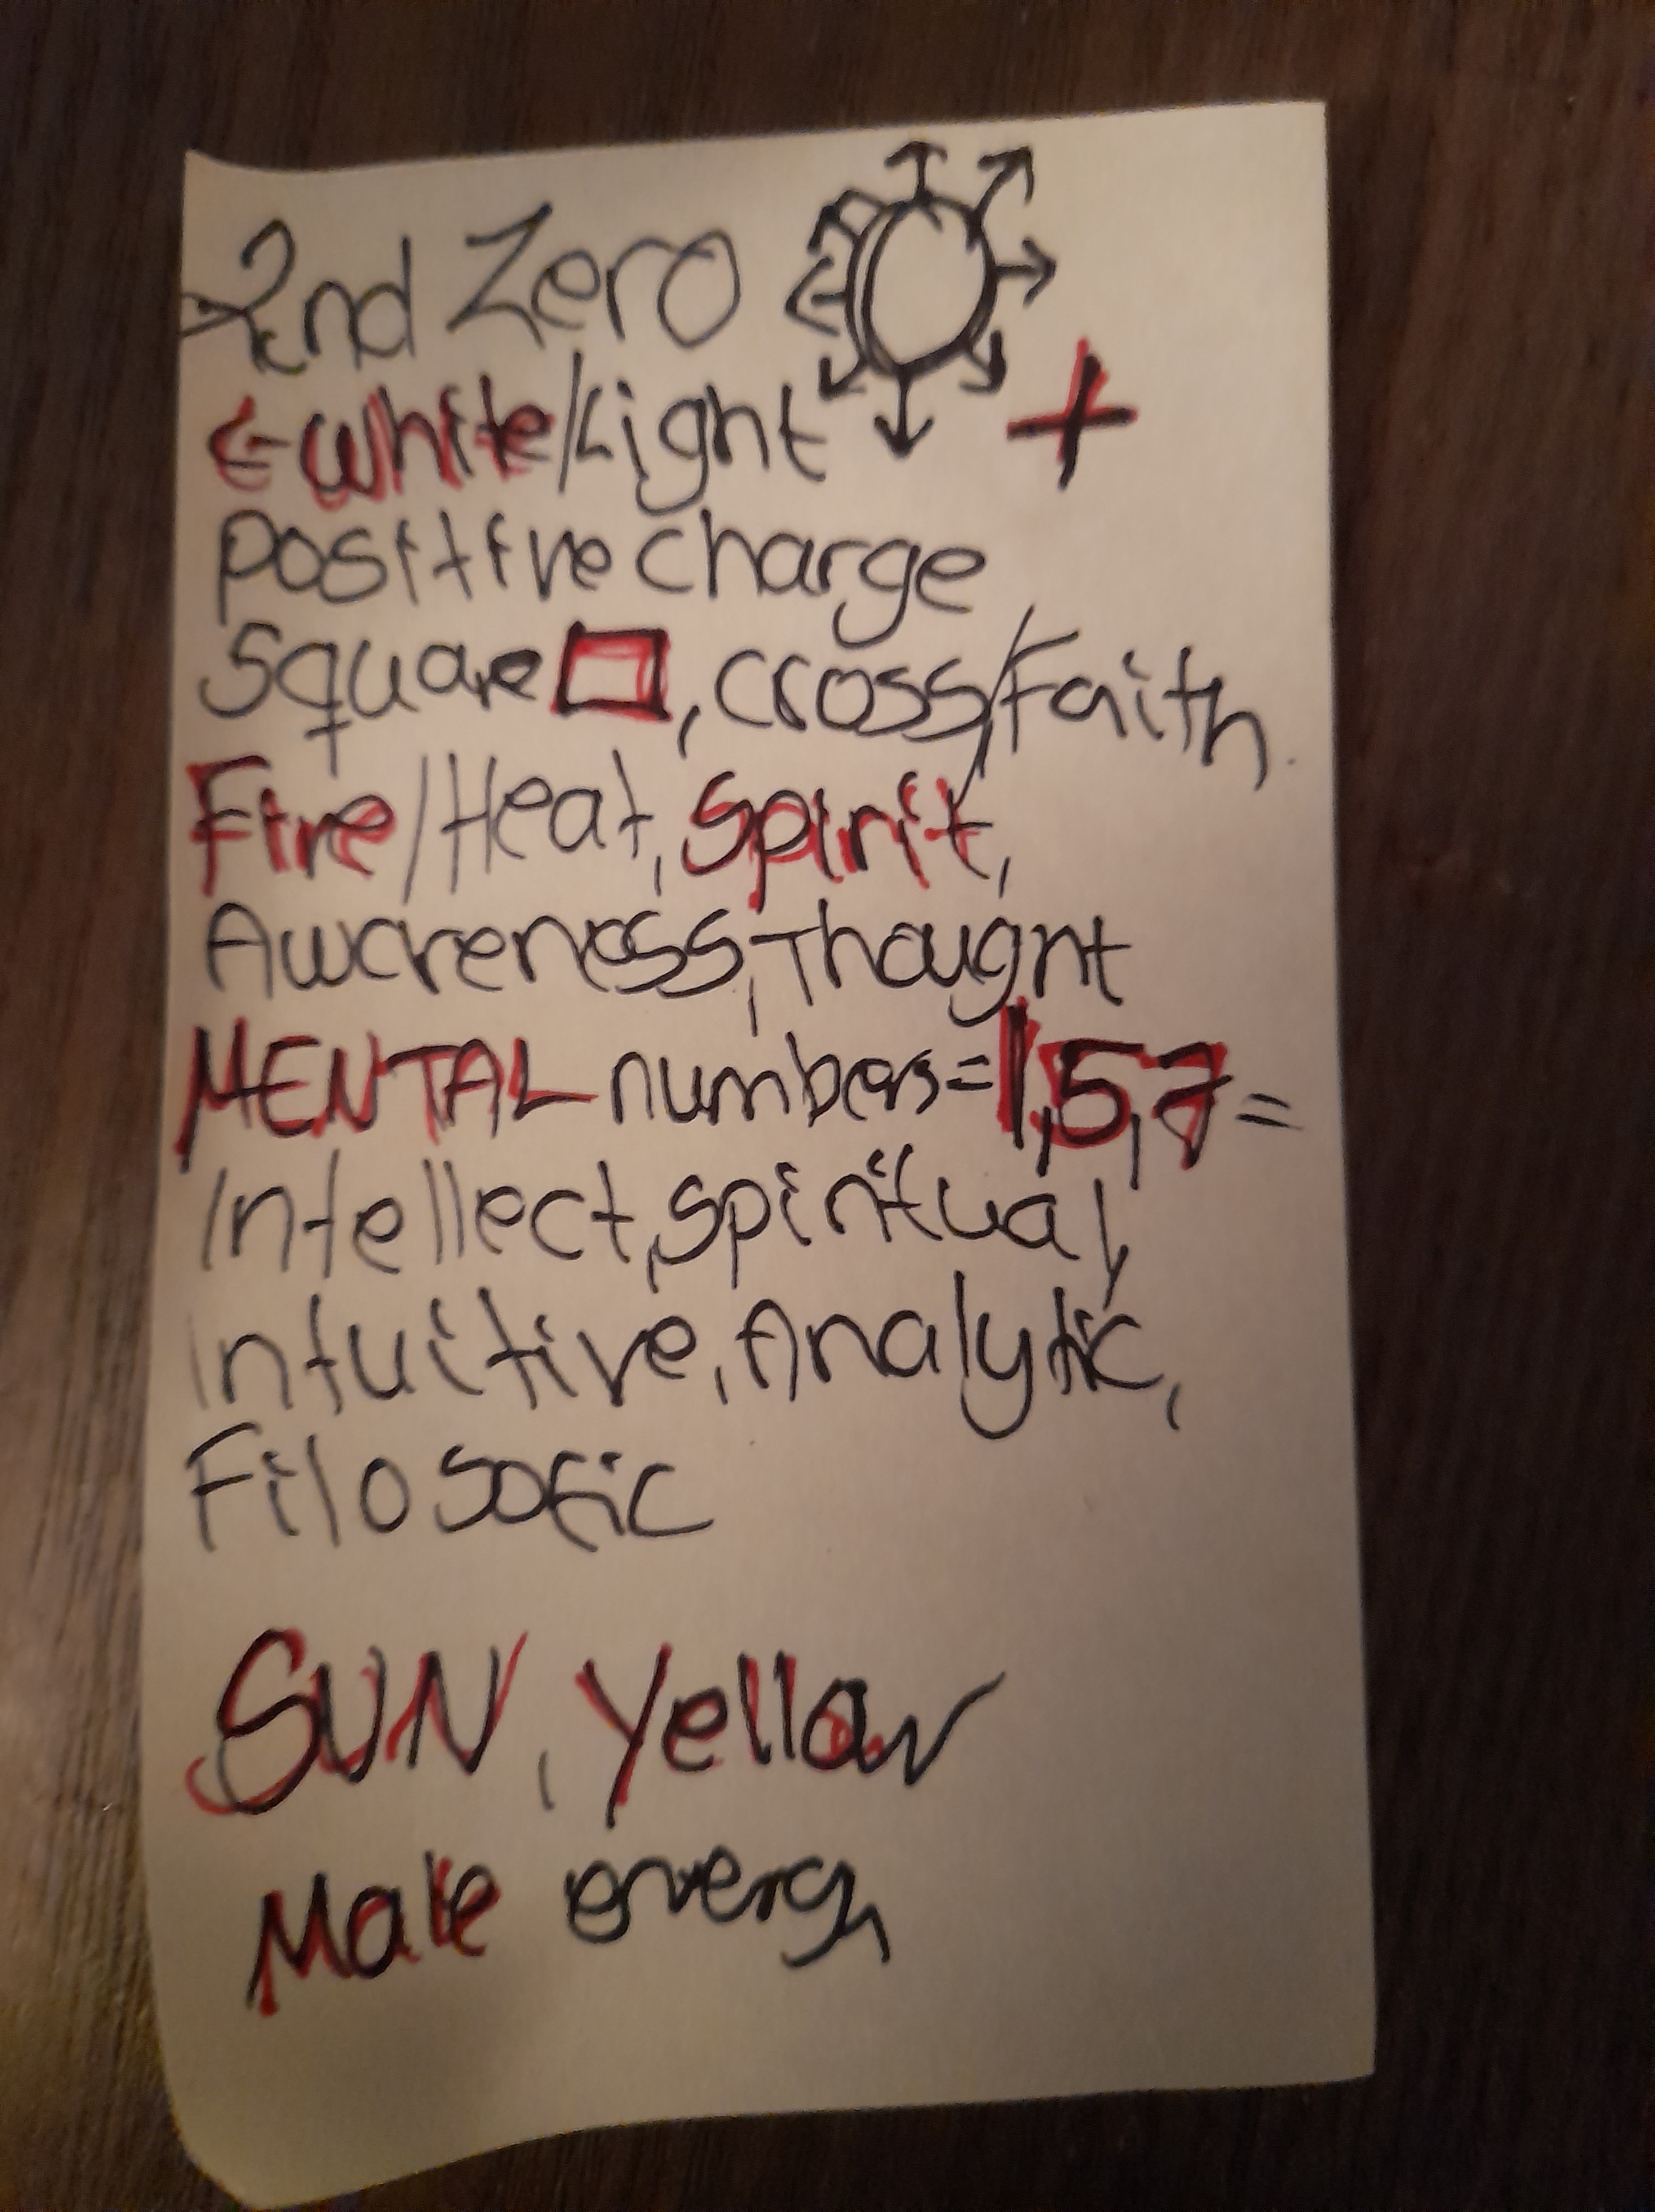 2nd Zero
←White/Light +
positive charge
Square □, cross/Faith
Fire/Heat, Spirit,
Awareness, Thought
MENTAL numbers=1,5,7=
Intellect, spiritual,
intuitive, Analytic,
Filosofic
SUN, Yellow
Male energy